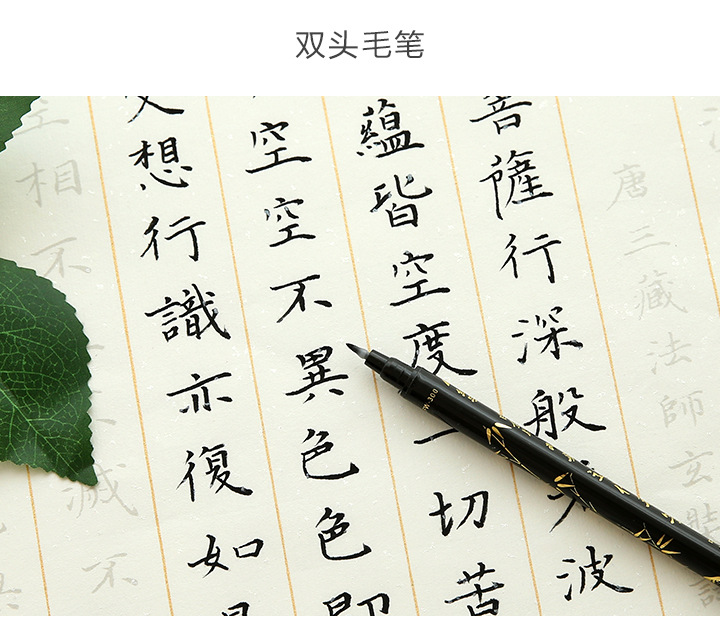 双头毛笔
唐三藏法師玄奘
菩薩行深般若波
蘊皆空度一切苦
空空不異色色即
受想行識亦復如是
空相不滅不